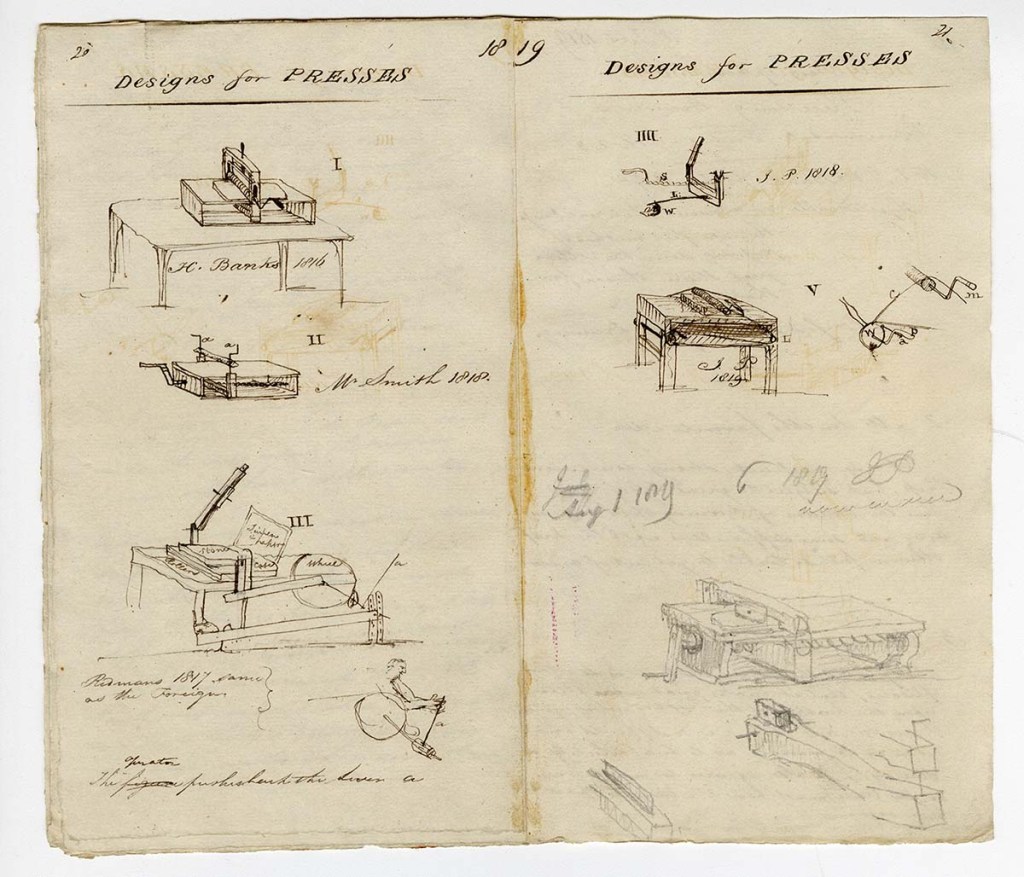 20
1819
Designs for PRESSES
I
H. Banks 1816
II
a
a
Mr Smith 1818.
III
Stone
Rollers
Coke
Wheel
a
Redmans 1817 same
as the Foreign
a
operator
The figure pushes back the lever a
21.
Designs for PRESSES
IIII
S
L
W.
J. P. 1818.
V
L
J. P.
1819
C
m
W
Aug 1 1819
6 1819 JP
now in use